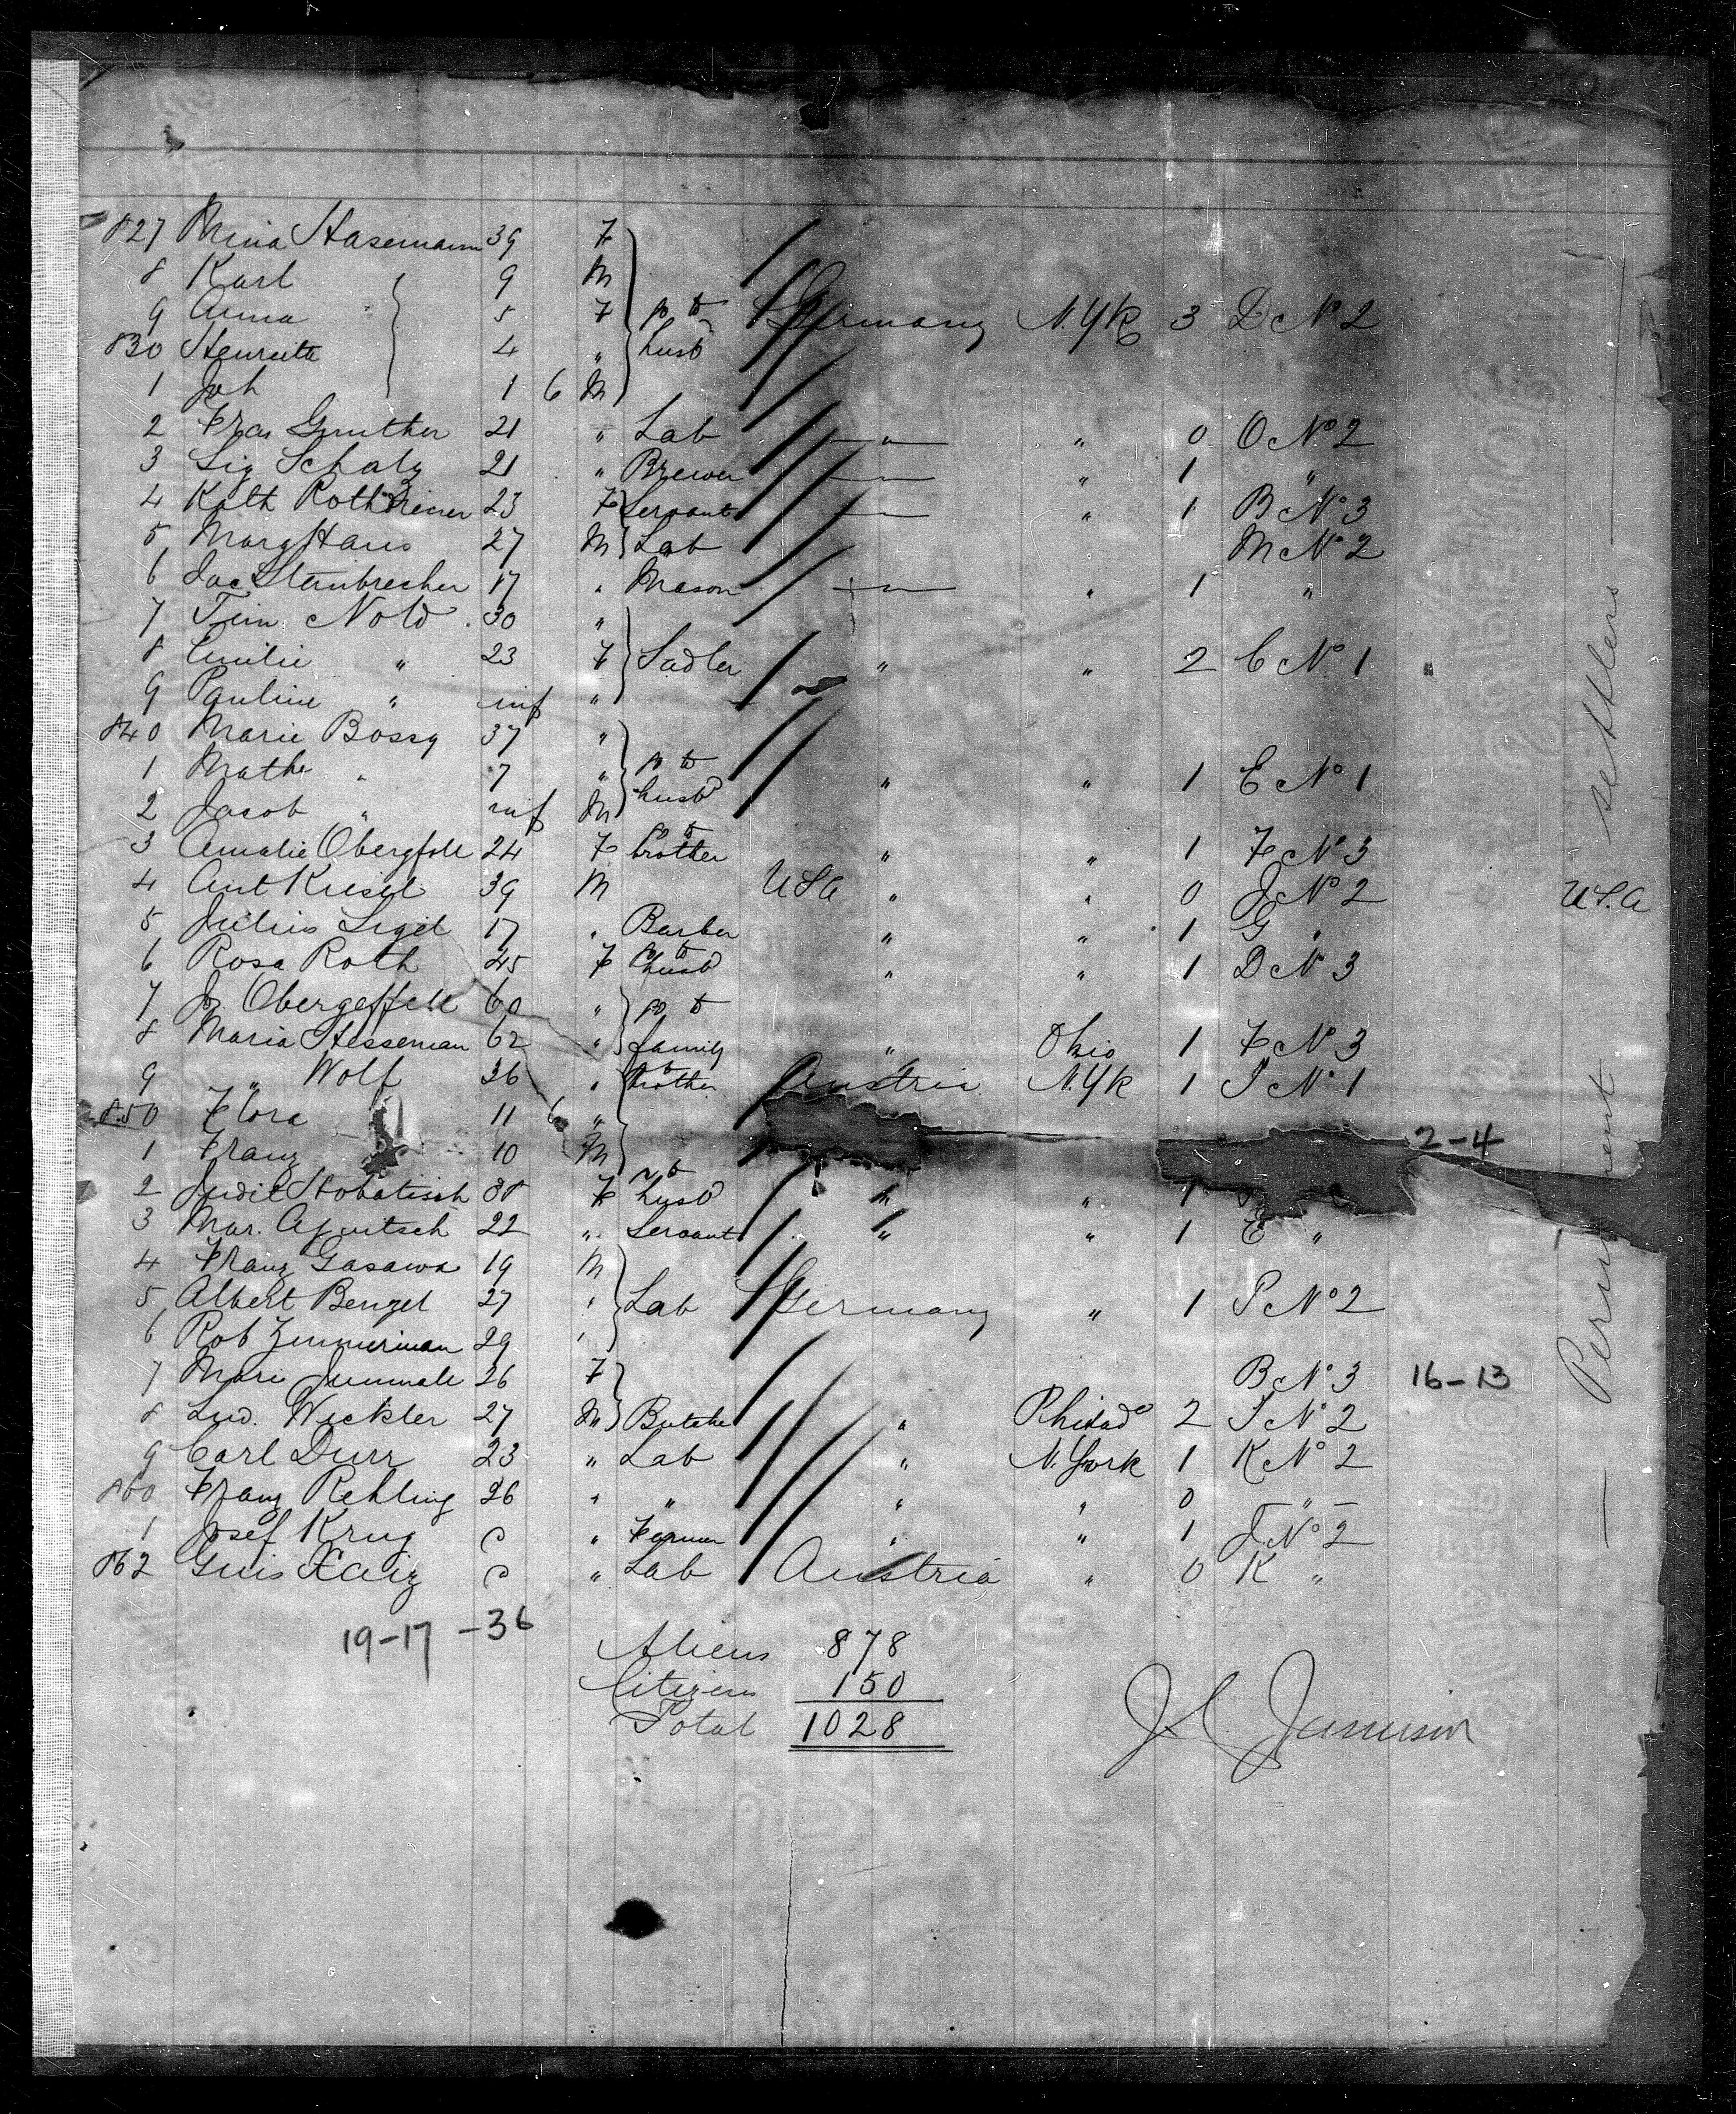 827 Mina Hasemann 39 F
8 Karl 9 M
9 Anna 5 F go to Germany N.Yk 3 D No 2
830 Henriette 4 " husb
1 Joh 1 6 M
2 Fras Gunther 21 " Lab " " 0 O No 2
3 Sig Schatz 21 " Brewer " " 1 "
4 Kath Rothbrener 23 F Servant " " 1 B No 3
5 Marg Hans 27 M Lab M No 2
6 Jac Steinbrecher 17 " Mason " " 1 "
7 Nold 30 "
8 Emilie " 23 F Sadler " " 2 C No 1
9 Pauline " inf "
840 Marie Bossy 37 "
1 Mathe " 7 " go to husb " " 1 E No 1
2 Jacob " inf M
3 Amalie Obergfoll 24 F go to brother " " 1 F No 3
4 Ant Kresel 39 M USA " " 0 J No 2 U.S.A
5 Julius Sigel 17 " Barber " " 1 G "
6 Rosa Roth 45 F go to husb " " 1 D No 3
7 Obergeffell 60 " go to
8 Maria Hesseman 62 " family " Ohio 1 F No 3
9 " Wolf 36 " to brother Austria N.Yk 1 No 1
850 Flora 11 6 "
1 Franz 10 M 2-4
2 Judit Hobatisch 38 F to husb " " 1
3 Mar. 22 " Servant " " 1 E "
4 Franz Gasawa 19 M
5 Albert Benzel 27 " Lab Germany " 1 P No 2
6 Rob Zimmerman 29 "
7 Mari 26 F B No 3 16-13
8 Lud. Wickler 27 M Butcher " Philada 2 No 2
9 Carl Durr 23 " Lab " N. York 1 K No 2
860 Franz Rehling 26 " " " " 0 "
1 Josef Krug " Farmer " " 1 J No 2
862 " Lab Austria " 0 K "
19-17-36
Aliens 878
Citizens 150
Total 1028
J C Jamison
— Permanent settlers —